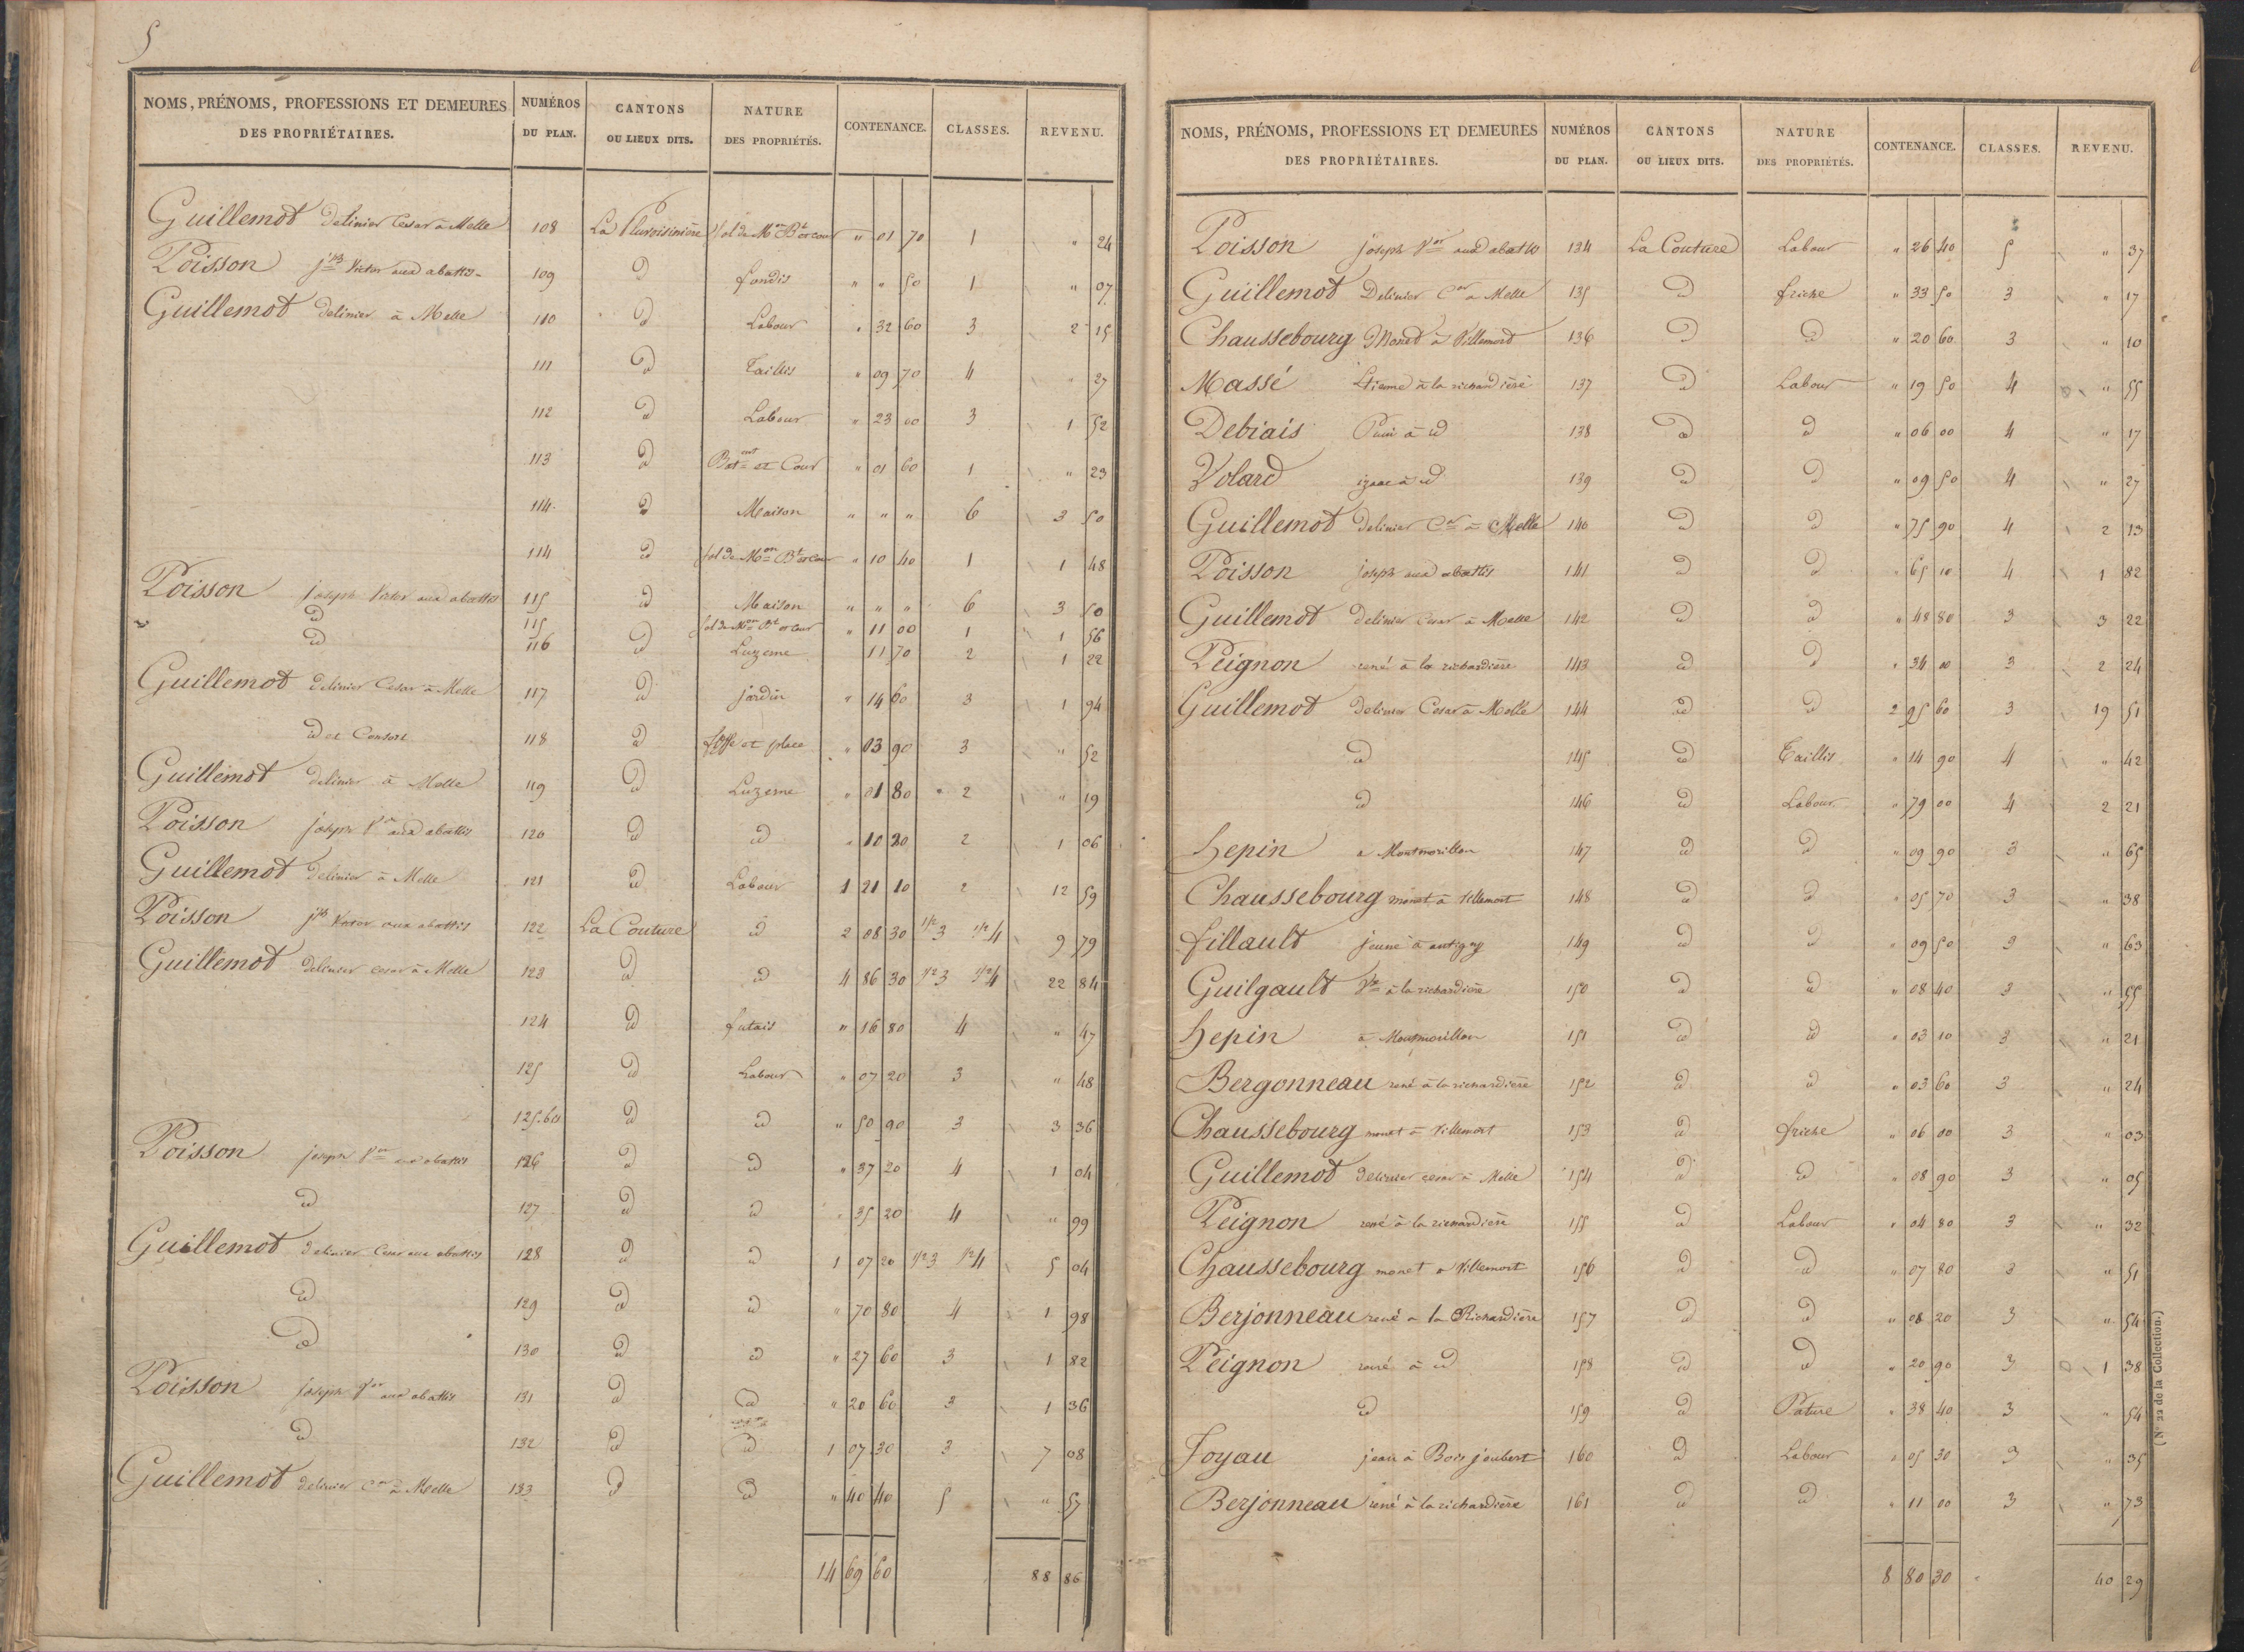 5
NOMS, PRÉNOMS, PROFESSIONS ET DEMEURES DES PROPRIÉTAIRES. NUMÉROS DU PLAN. CANTONS OU LIEUX DITS. NATURE DES PROPRIÉTÉS. CONTENANCE. CLASSES. REVENU.
Guillemot Delinier Cesar à Melle 108 La sol de Mon Bt et cour " 01 70 1 " 24
Poisson jph Victor aux abattis 109 id fondis " " 50 1 " 07
Guillemot delinier à Melle 110 id Labour " 32 60 3 2 15
111 id Taillis " 09 70 4 " 27
112 id Labour " 23 00 3 1 52
113 id Batent et Cour " 01 60 1 " 23
114 id Maison " " " 6 3 50
114 id sol de Mon Bt et cour " 10 40 1 1 48
Poisson joseph Victor aux abattis 115 id Maison " " " 6 3 50
id 115 sol de Mon Bt et cour " 11 00 1 1 56
id 116 id Luzerne 11 70 2 1 22
Guillemot delinier Cesar à Melle 117 id jardin " 14 60 3 1 94
id et Consort 118 id fosse et place " 03 90 3 " 52
Guillemot delinier à Melle 119 id Luzerne " 01 80 " 2 " 19
Poisson joseph Vor aux abattis 120 id id " 10 20 2 1 06
Guillemot delinier à Melle 121 id Labour 1 21 10 2 12 59
Poisson jph Victor aux abattis 122 La Couture id 2 08 30 1/2 3 1/2 4 9 79
Guillemot delinier cesar à Melle 123 id id 4 86 30 1/2 3 1/2 4 22 84
124 id futais " 16 80 4 " 47
125 id Labour " 07 20 3 " 48
125.bis id id " 50 90 3 3 36
Poisson joseph Vor aux abattis 126 id id " 37 20 4 1 04
id 127 id id " 35 20 4 " 99
Guillemot delinier Cesar aux abattis 128 id id 1 07 20 1/2 3 1/2 4 5 04
id 129 id id " 70 80 4 1 98
id 130 id id " 27 60 3 1 82
Poisson joseph Vor aux abattis 131 id id " 20 60 3 1 36
id 132 id id 1 07 30 3 7 08
Guillemot delinier Car à Melle 133 id id " 40 40 5 " 57
14 69 60 88 86
6
NOMS, PRÉNOMS, PROFESSIONS ET DEMEURES DES PROPRIÉTAIRES. NUMÉROS DU PLAN. CANTONS OU LIEUX DITS. NATURE DES PROPRIÉTÉS. CONTENANCE. CLASSES. REVENU.
Poisson joseph Vor aux abattis 134 La Couture Labour " 26 40 5 " 37
Guillemot Delinier Car à Melle 135 id friche " 33 50 3 " 17
Chaussebourg Monet à Villemort 136 id id " 20 60 3 " 10
Massé Etienne à la richardière 137 id Labour " 19 50 4 " 55
Debiais à id 138 id id " 06 00 4 " 17
Volard izaac à id 139 id id " 09 50 4 " 27
Guillemot delinier Car à Melle 140 id id " 75 90 4 2 13
Poisson joseph aux abattis 141 id id " 65 10 4 1 82
Guillemot delinier Cesar à Melle 142 id id " 48 80 3 3 22
Peignon rené à la richardière 143 id id " 34 00 3 2 24
Guillemot delinier Cesar à Melle 144 id id 2 95 60 3 19 51
id 145 id Taillis " 14 90 4 " 42
id 146 id Labour " 79 00 4 2 21
Hepin a Montmorillon 147 id id " 09 90 3 " 65
Chaussebourg monet à Villemort 148 id id " 05 70 3 " 38
fillault jeune à antigny 149 id id " 09 50 3 " 63
Guilgault Ve à la richardière 150 id id " 08 40 3 " 55
Hepin à Montmorillon 151 id id " 03 10 3 " 21
Bergonneau rené à la richardière 152 id id " 03 60 3 " 24
Chaussebourg monet à Villemort 153 id friche " 06 00 3 " 03
Guillemot delinier cesar à Melle 154 id id " 08 90 3 " 05
Peignon rené à la richardière 155 id Labour " 04 80 3 " 32
Chaussebourg monet a Villemort 156 id id " 07 80 3 " 51
Berjonneau rené a la Richardière 157 id id " 08 20 3 " 54
Peignon rené à id 158 id id " 20 90 3 1 38
id 159 id Pature " 38 40 3 " 54
Foyau jean à Bois joubert 160 id Labour " 05 30 3 " 35
Berjonneau rené à la richardière 161 id id " 11 00 3 " 73
8 80 30 40 29
(N° 22 de la Collection.)